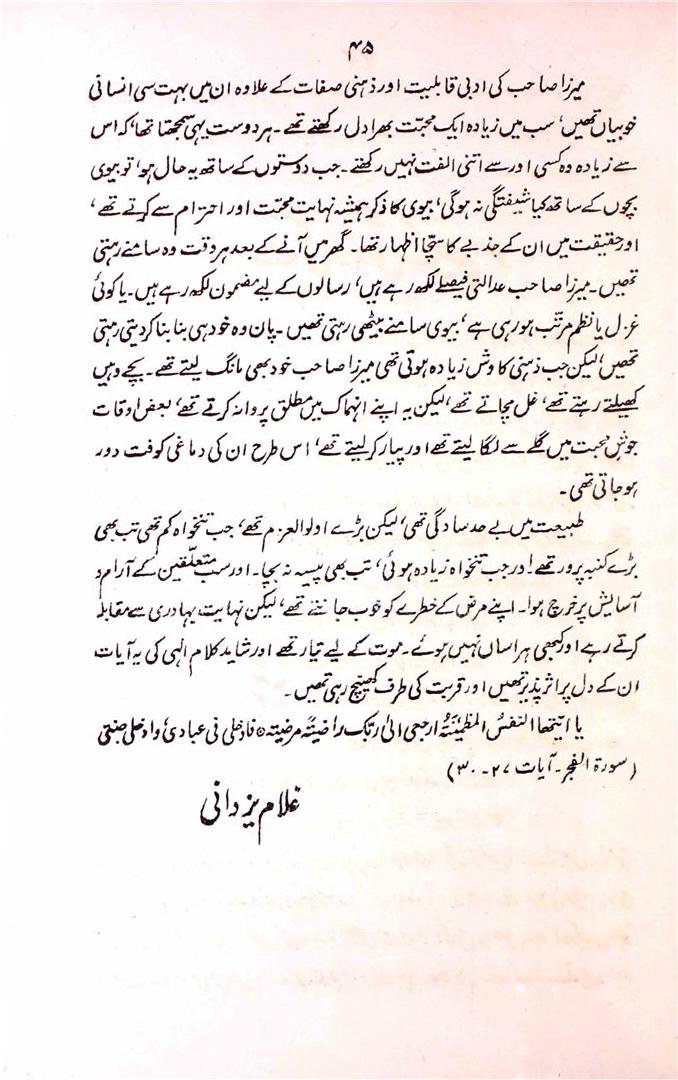 ۴۵
میرزا صاحب کی ادبی قابلیت اور ذہنی صفات کے علاوہ ان میں بہت سی انسانی
خوبیاں تھیں، سب میں زیادہ ایک محبّت بھرا دل رکھتے تھے۔ ہر دوست یہی سمجھتا تھا، کہ اس
سے زیادہ وہ کسی اور سے اتنی الفت نہیں رکھتے۔ جب دوستوں کے ساتھ یہ حال ہو، تو بیوی
بچوں کے ساتھ کیا شیفتگی نہ ہوگی، بیوی کا ذکر ہمیشہ نہایت محبّت اور احترام سے کرتے تھے،
اور حقیقت میں ان کے جذبے کا سچّا اظہار تھا۔ گھر میں آنے کے بعد ہر وقت وہ سامنے رہتی
تھیں۔ میرزا صاحب عدالتی فیصلے لکھ رہے ہیں، رسالوں کے لیے مضمون لکھ رہے ہیں۔ یا کوئی
غزل یا نظم مرتّب ہو رہی ہے، بیوی سامنے بیٹھی رہتی تھیں۔ پان وہ خود ہی بنا بنا کر دیتی رہتی
تھیں، لیکن جب ذہنی کاوش زیادہ ہوتی تھی میرزا صاحب خود بھی مانگ لیتے تھے۔ بچے وہیں
کھیلتے رہتے تھے، غل مچاتے تھے، لیکن یہ اپنے انہماک میں مطلق پروا نہ کرتے تھے، بعض اوقات
جوشِ محبت میں گلے سے لگا لیتے تھے اور پیار کر لیتے تھے، اس طرح ان کی دماغی کوفت دور
ہو جاتی تھی۔
طبیعت میں بے حد سادگی تھی، لیکن بڑے اولوالعزم تھے، جب تنخواہ کم تھی تب بھی
بڑے کنبہ پرور تھے اور جب تنخواہ زیادہ ہوئی، تب بھی پیسہ نہ بچا۔ اور سب متعلّقین کے آرام و
آسایش پر خرچ ہوا۔ اپنے مرض کے خطرے کو خوب جانتے تھے، لیکن نہایت بہادری سے مقابلہ
کرتے رہے اور کبھی ہراساں نہیں ہوئے۔ موت کے لیے تیار تھے اور شاید کلام الٰہی کی یہ آیات
ان کے دل پر اثر پذیر تھیں اور قربت کی طرف کھینچ رہی تھیں۔
یا ایتھا النفسُ المطمئِنّۃُ ارجعی الیٰ ربّک راضیتہً مرضیتہ ٥ فادخلی فی عبادیْ وادخلی جنتی
(سورۃ الفجر۔ آیات ۲۷۔۳۰)
غلام یزدانی